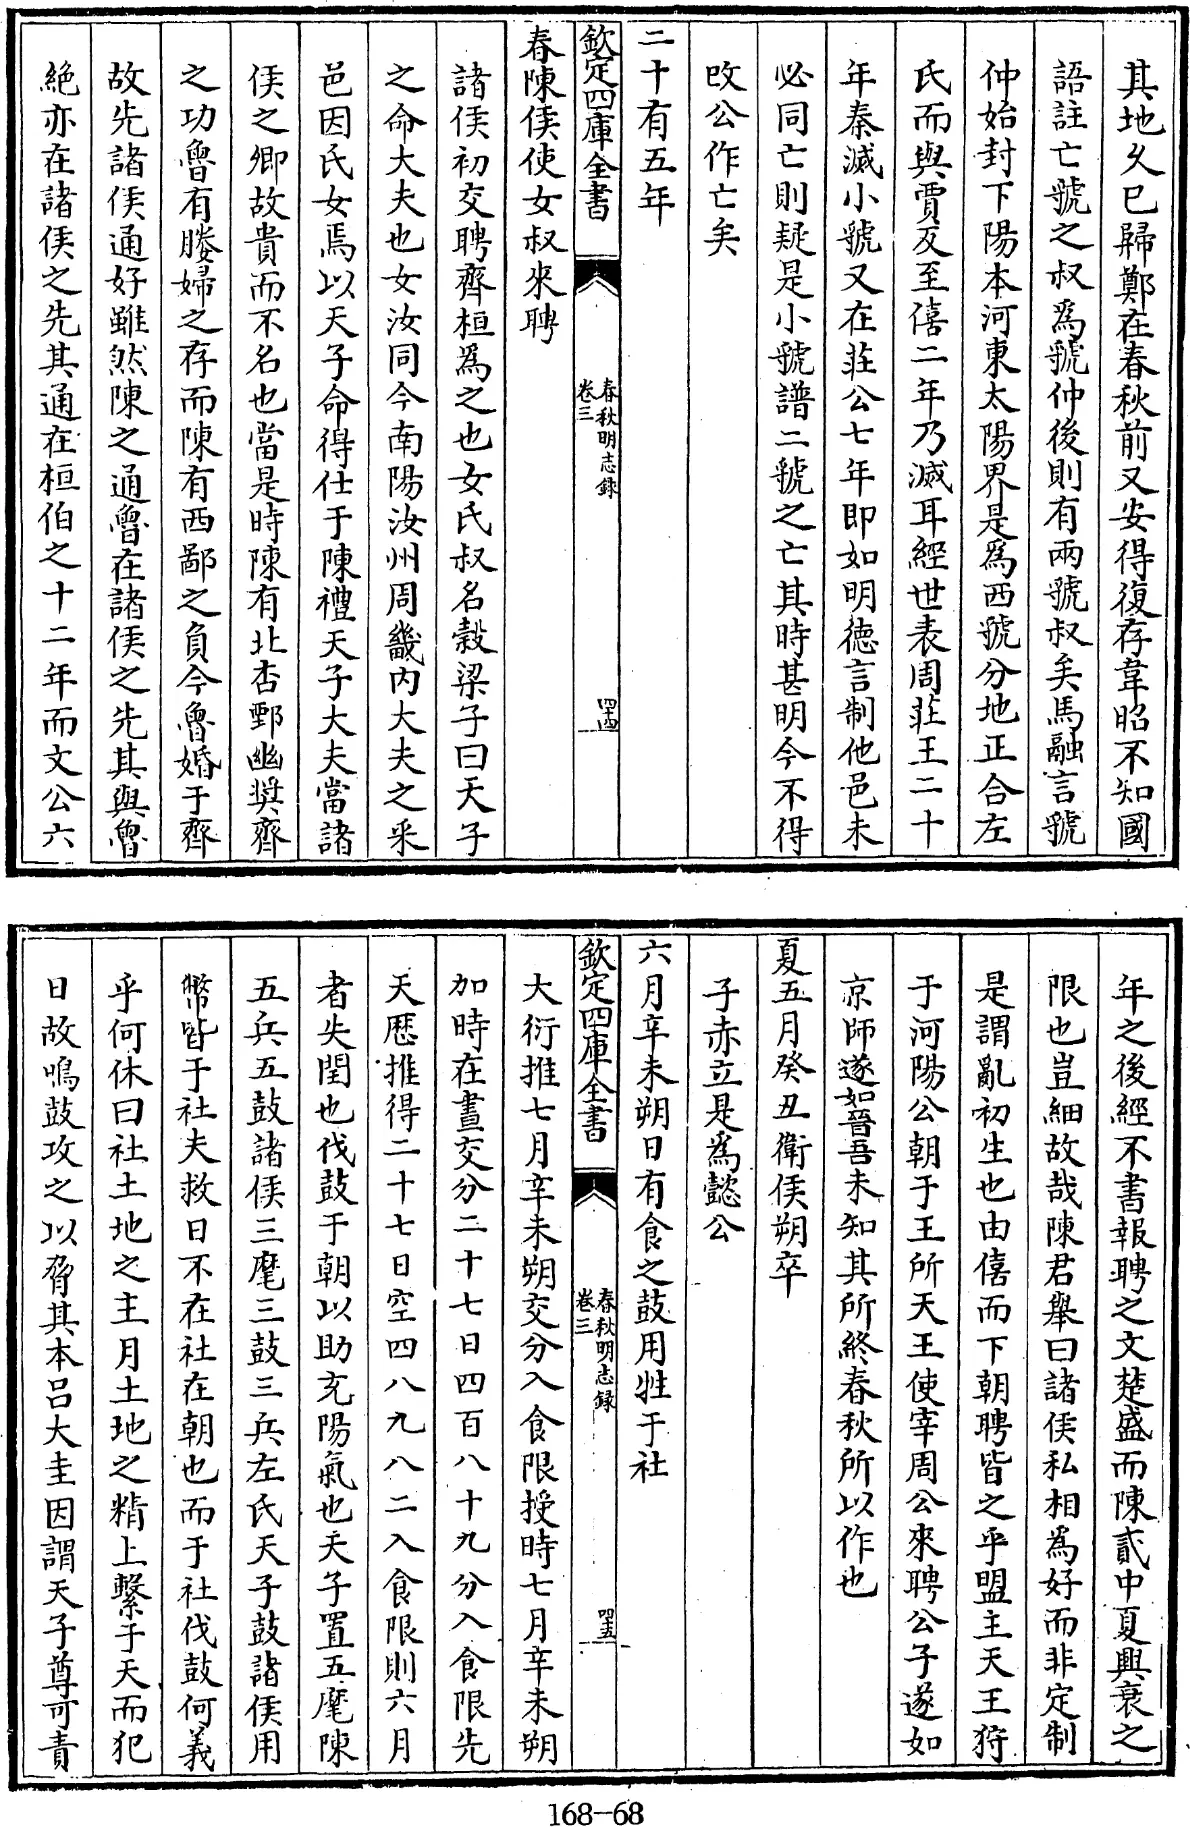 其地久已歸鄭在春秋前又安得復存韋昭不知國
語註亡虢之叔為虢仲後則有兩虢叔矣馬融言虢
仲始封下陽本河東太陽界是為西虢分地正合左
氏而與賈反至僖二年乃滅耳經世表周莊王二十
年秦滅小虢又在莊公七年即如明徳言制他邑未
必同亡則疑是小虢譜二虢之亡其時甚明今不得
改公作亡矣
二十有五年
欽定四庫全書
春秋明志録
卷三
四十四
春陳侯使女叔來聘
諸侯初交聘齊桓為之也女氏叔名榖梁子曰天子
之命大夫也女汝同今南陽汝州周畿内大夫之采
邑因氏女焉以天子命得仕于陳禮天子大夫當諸
侯之卿故貴而不名也當是時陳有北杏鄄幽奨齊
之功魯有媵婦之存而陳有西鄙之負今魯婚于齊
故先諸侯通好雖然陳之通魯在諸侯之先其與魯
絶亦在諸侯之先其通在桓伯之十二年而文公六
年之後經不書報聘之文楚盛而陳貳中夏興衰之
限也豈細故哉陳君舉曰諸侯私相為好而非定制
是謂亂初生也由僖而下朝聘皆之乎盟主天王狩
于河陽公朝于王所天王使宰周公來聘公子遂如
京師遂如晉吾未知其所終春秋所以作也
夏五月癸丑衛侯朔卒
子赤立是為懿公
六月辛未朔日有食之鼓用牲于社
欽定四庫全書
春秋明志録
卷三
四十五
大衍推七月辛未朔交分入食限授時七月辛未朔
加時在晝交分二十七日四百八十九分入食限先
天厯推得二十七日空四八九八二入食限則六月
者失閏也伐鼓于朝以助充陽氣也天子置五麾陳
五兵五鼓諸侯三麾三鼓三兵左氏天子鼓諸侯用
幣皆于社夫救日不在社在朝也而于社伐鼓何義
乎何休曰社土地之主月土地之精上繫于天而犯
日故鳴鼓攻之以脅其本呂大圭因謂天子尊可責
168-68